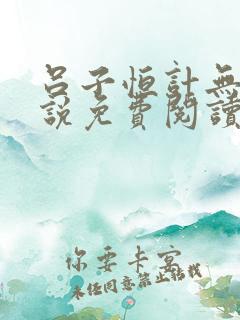 呂子恒計無
說免費閱讀
你要卡宴
未经同意禁止搭载